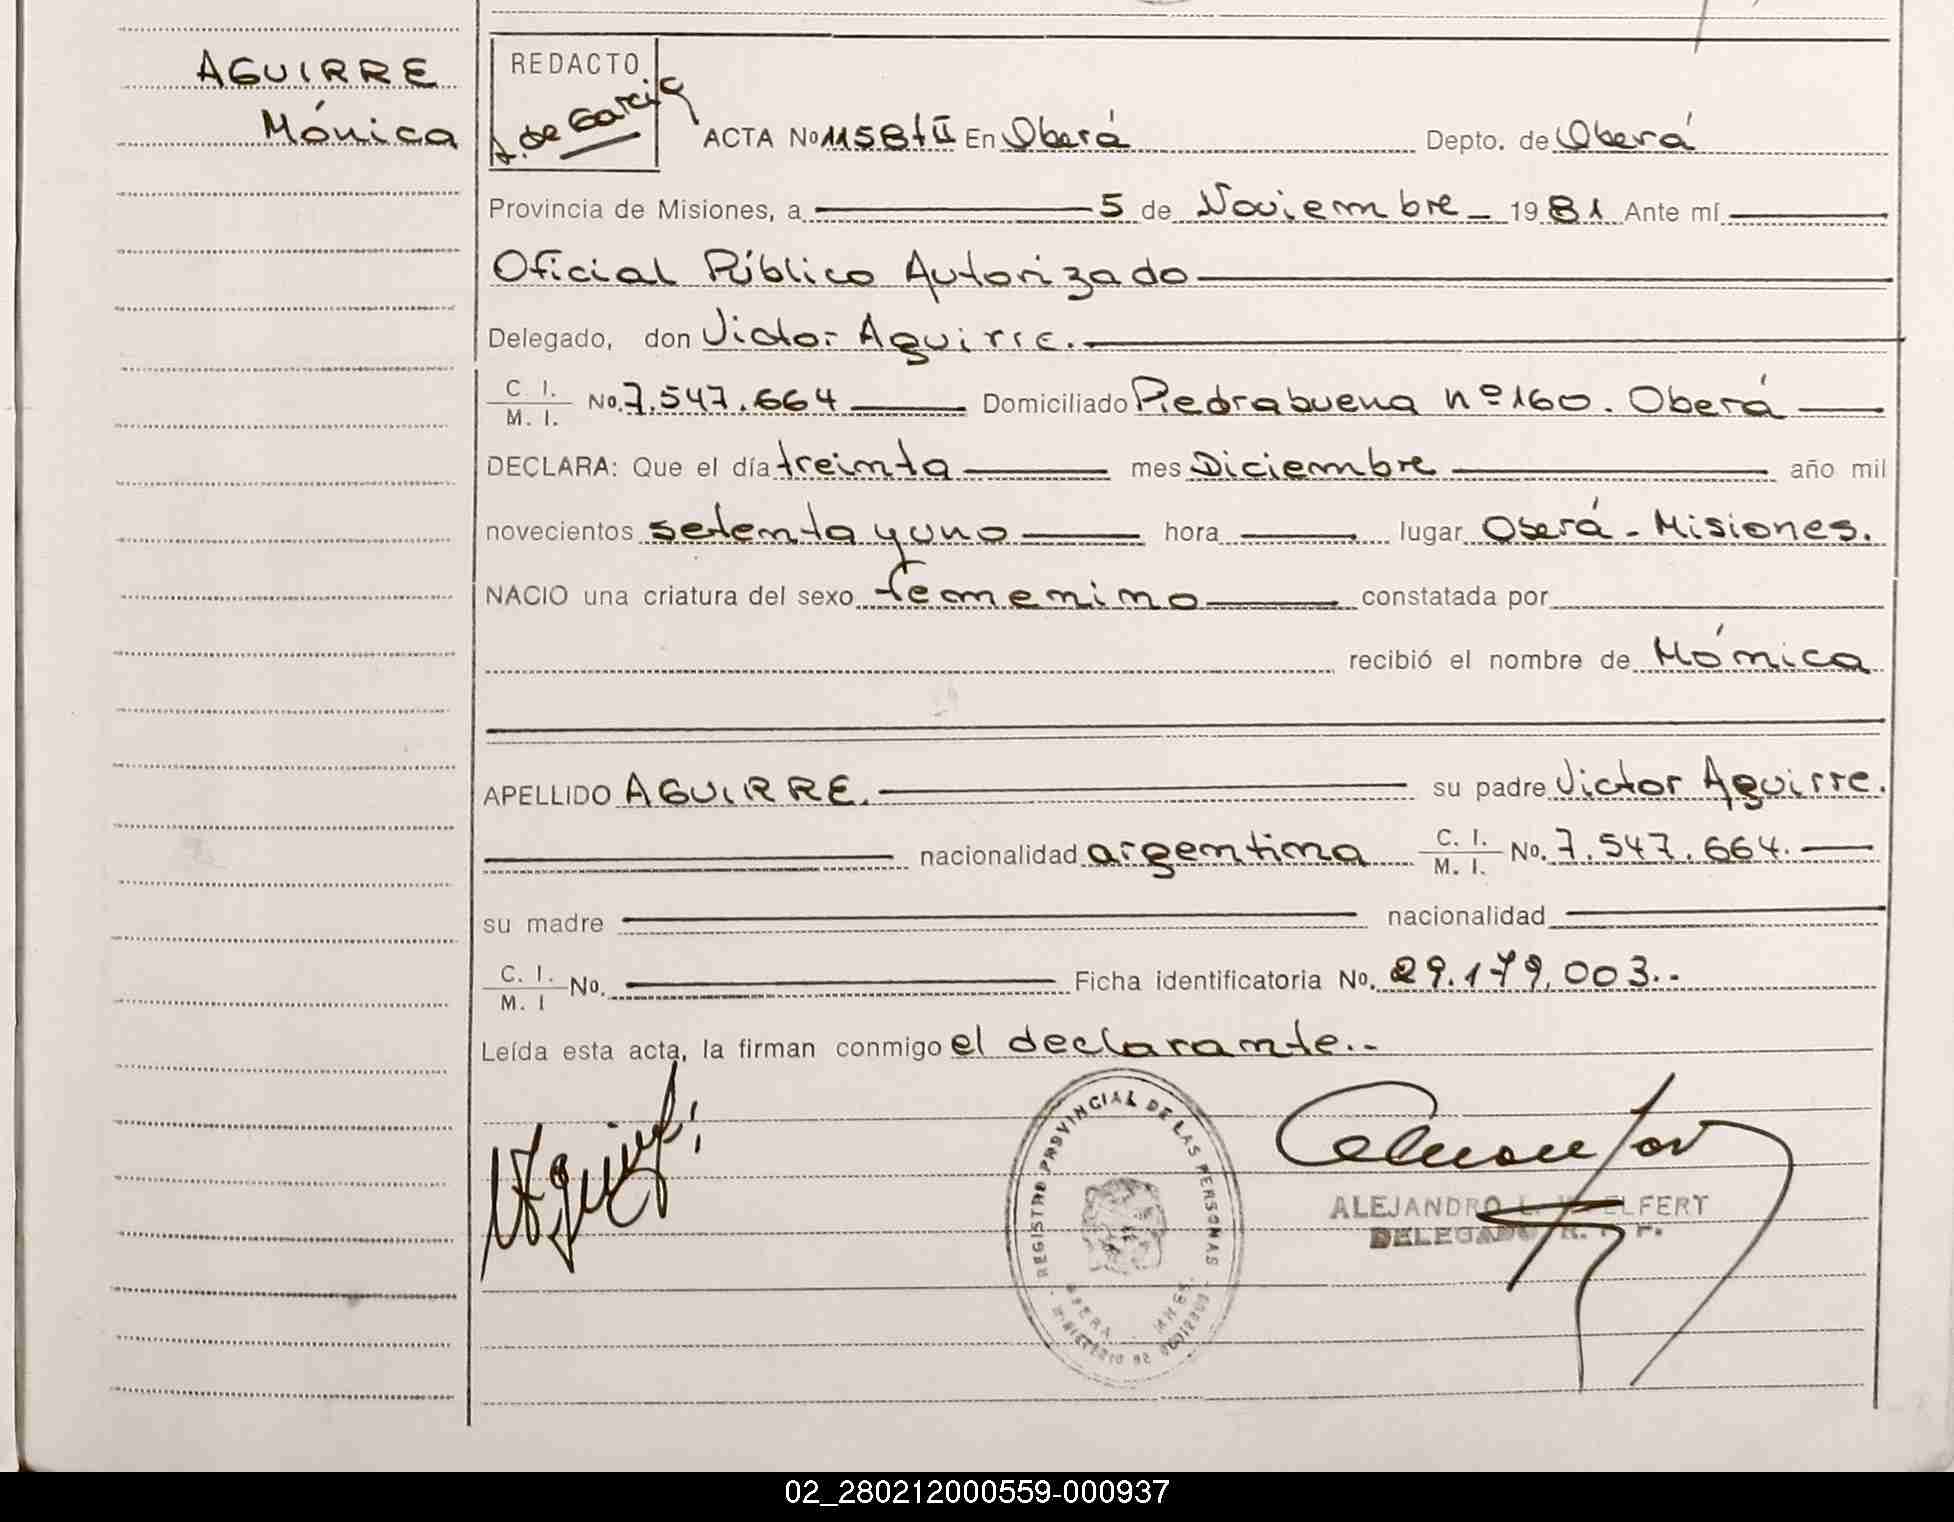 AGUIRRE
Mónica
REDACTO
A. de Garcia
ACTA No 1158 t II En Oberá Depto. de Oberá
Provincia de Misiones, a 5 de Noviembre 1981 Ante mí
Oficial Público Autorizado
Delegado, don Victor Aguirre.
C. I. / M. I. No. 7.547.664 Domiciliado Piedrabuena nº 160. Oberá
DECLARA: Que el día treinta mes Diciembre año mil
novecientos setenta y uno hora lugar Oberá - Misiones.
NACIO una criatura del sexo femenino constatada por
recibió el nombre de Mónica
APELLIDO AGUIRRE. su padre Victor Aguirre.
nacionalidad argentina C. I. / M. I. No. 7.547.664.
su madre nacionalidad
C. I. / M. I No. Ficha identificatoria No. 29.179.003.-
Leída esta acta, la firman conmigo el declarante.-
REGISTRO PROVINCIAL DE LAS PERSONAS
MINISTERIO DE GOBIERNO
OBERA - MNES.
ALEJANDRO L. ELFERT
DELEGADO R. P. P.
02_280212000559-000937